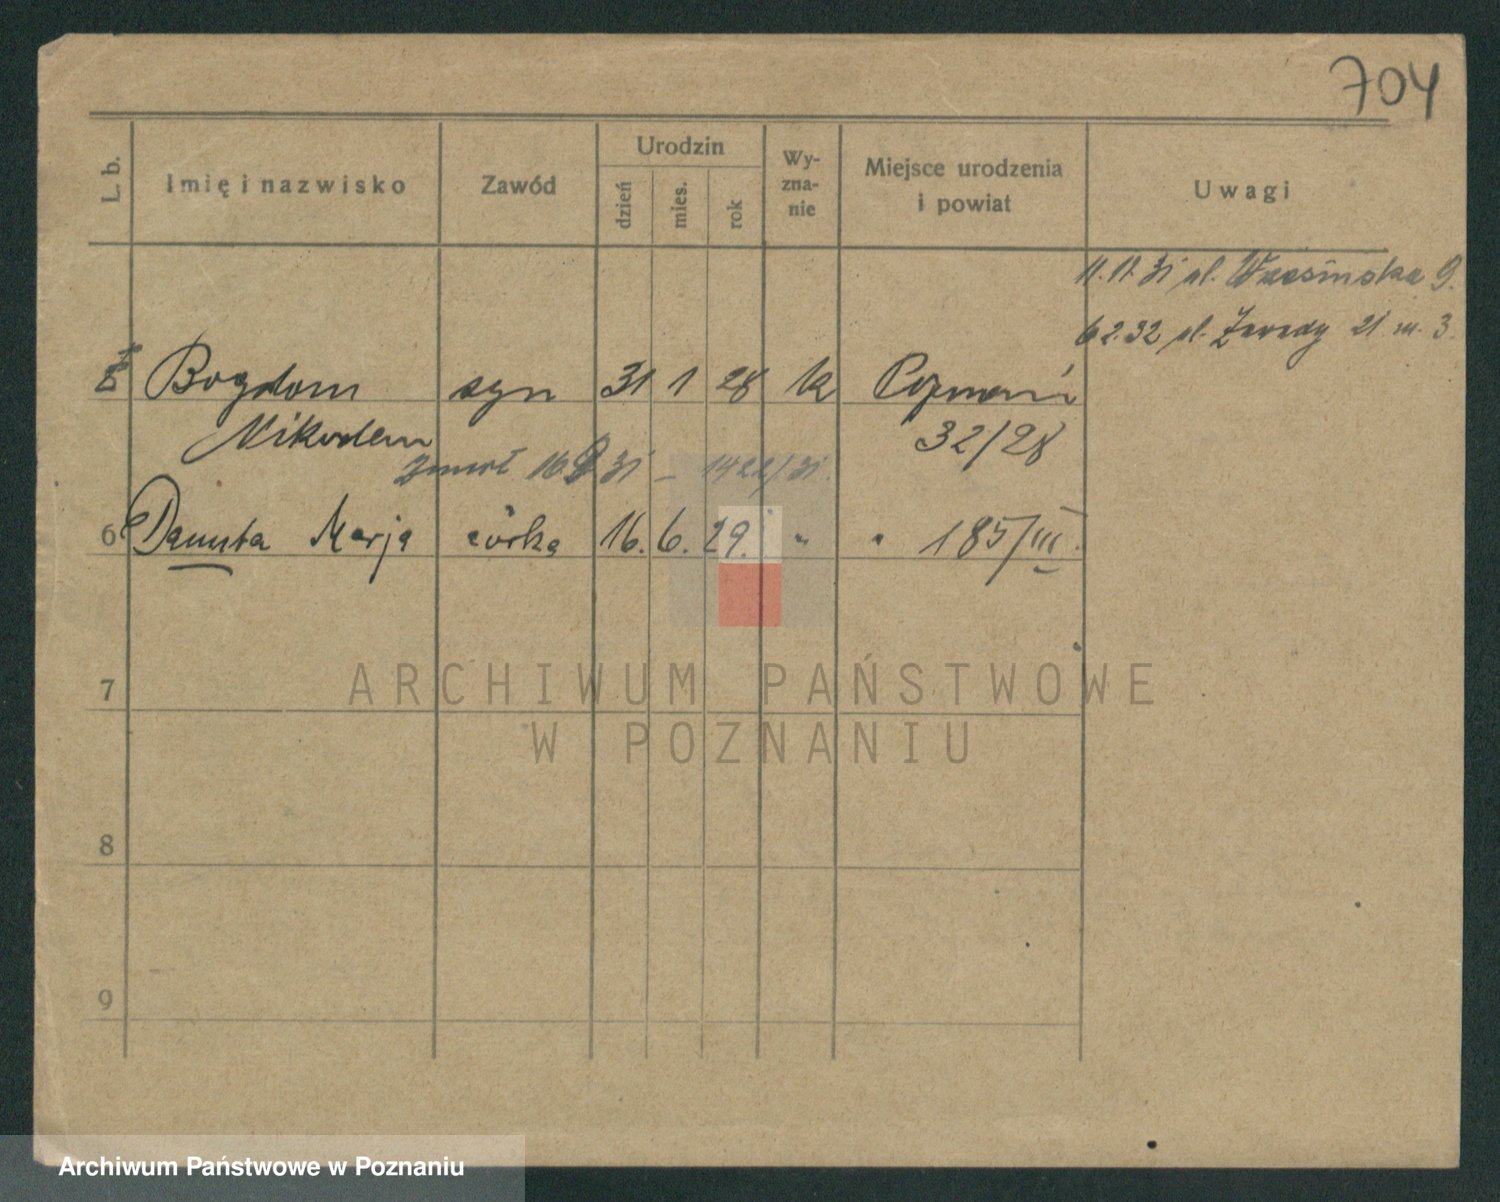 704
L. b.
Imię i nazwisko
Zawód
Urodzin
dzień
mies.
rok
Wy-
zna-
nie
Miejsce urodzenia
i powiat
Uwagi
11.11.31 ul. 9.
6 2.32 ul. Zawady 21 m. 3.
5 Bogdan syn 31 1 28 k Poznań
Nikodem 32/28
zmarł 16 31 – 1422/31.
6 Danuta Marja córka 16. 6. 29. " " 185/III.
7
8
9
ARCHIWUM PAŃSTWOWE
W POZNANIU
Archiwum Państwowe w Poznaniu